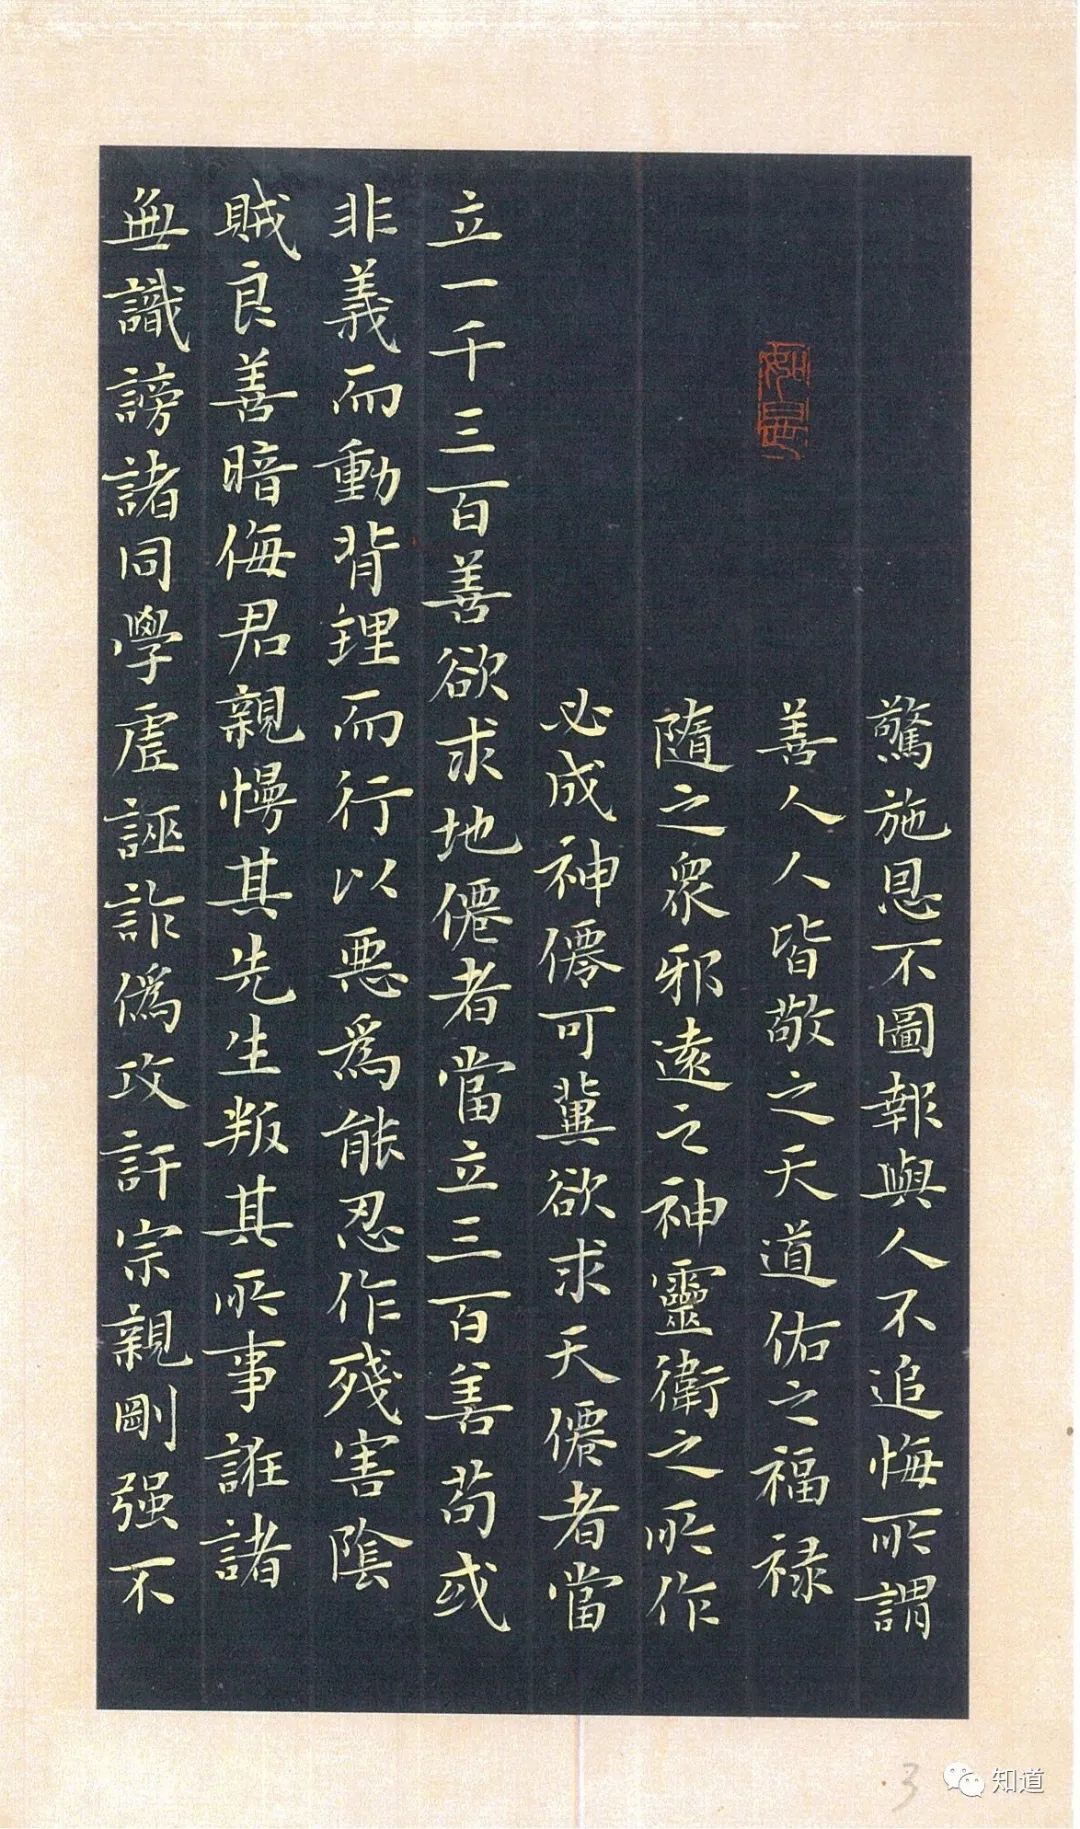 驚施恩不圖報與人不追悔所謂
善人人皆敬之天道佑之福祿
隨之衆邪遠之神靈衛之所作
必成神僊可冀欲求天僊者當
立一千三百善欲求地僊者當立三百善苟或
非義而動背理而行以惡爲能忍作殘害陰
賊良善暗侮君親慢其先生叛其所事誑諸
無識謗諸同學虛誣詐偽攻訐宗親剛强不
如是
3
知道